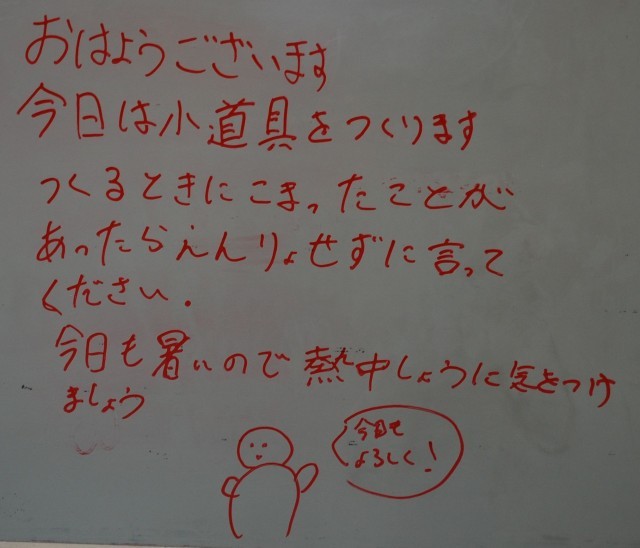 おはようございます
今日は小道具をつくります
つくるときにこまったことが
あったらえんりょせずに言って
ください.
今日も暑いので熱中しょうに気をつけ
ましょう
今日も
よろしく!